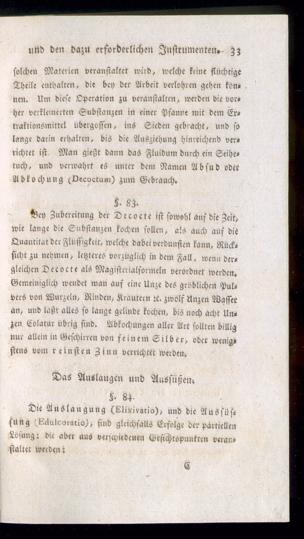 und den dazu erforderlichen Instrumenten. 33
solchen Materien veranstaltet wird, welche keine flüchtige
Theile enthalten, die bey der Arbeit verlohren gehen kön-
nen. Um diese Operation zu veranstalten, werden die vor-
her verkleinerten Substanzen in einer Pfanne mit dem Ex-
traktionsmittel übergossen, ins Sieden gebracht, und so
lange darin erhalten, bis die Ausziehung hinreichend ver-
richtet ist. Man gießt dann das Fluidum durch ein Seihe-
tuch, und verwahrt es unter dem Namen Absud oder
Abkochung (Decoctum) zum Gebrauch.
§. 83.
Bey Zubereitung der Decocte ist sowohl auf die Zeit,
wie lange die Substanzen kochen sollen, als auch auf die
Quantitat der Flüssigkeit, welche dabei verdunsten kann, Rück-
sicht zu nehmen, letzteres vorzüglich in dem Fall, wenn der-
gleichen Decocte als Magisterialformeln verordnet werden.
Gemeiniglich wendet man auf eine Unze des gröblichen Pul-
vers von Wurzeln, Rinden, Kräutern ꝛc. zwölf Unzen Wasser
an, und läßt alles so lange gelinde kochen, bis noch acht Un-
zen Colatur übrig sind. Abkochungen aller Art sollten billig
nur allein in Geschirren von feinem Silber, oder wenig-
stens vom reinsten Zinn verrichtet werden.
Das Auslaugen und Aussüßen.
§. 84.
Die Auslaugung (Elixivatio), und die Aussüs-
sung (Edulcoratio), sind gleichfalls Erfolge der partiellen
Lösung: die aber aus verschiedenen Gesichtspunkten veran-
staltet werden:
C